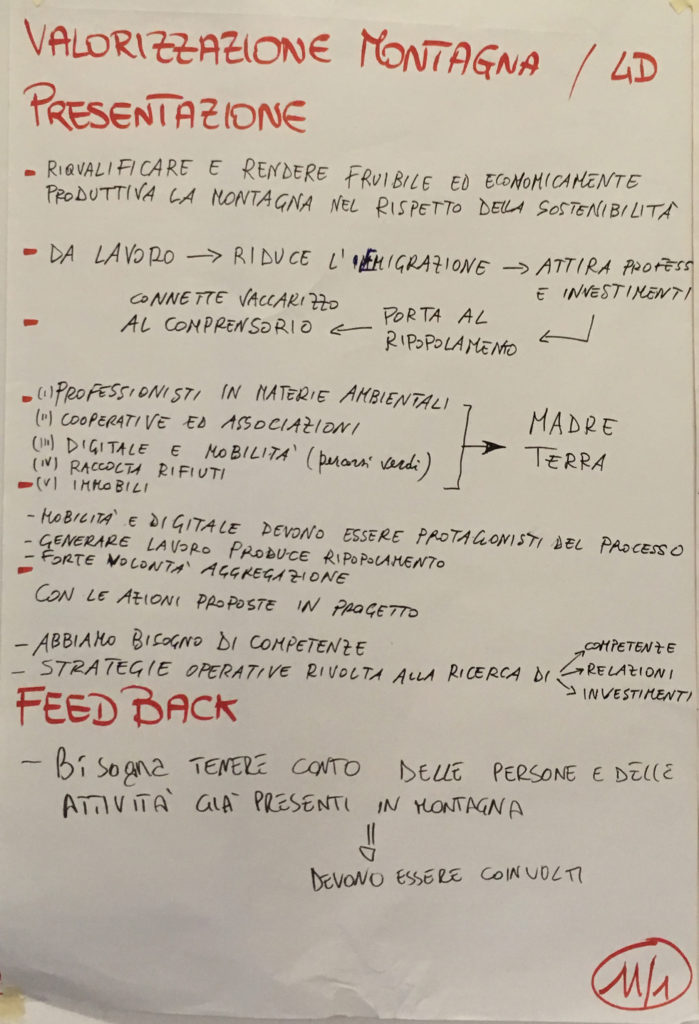 VALORIZZAZIONE MONTAGNA / 4D
PRESENTAZIONE
- RIQUALIFICARE E RENDERE FRUIBILE ED ECONOMICAMENTE
PRODUTTIVA LA MONTAGNA NEL RISPETTO DELLA SOSTENIBILITÀ
- DA LAVORO → RIDUCE L'EMIGRAZIONE → ATTIRA PROFESS
E INVESTIMENTI
CONNETTE VACCARIZZO
- AL COMPRENSORIO ← PORTA AL
RIPOPOLAMENTO ←
- (I) PROFESSIONISTI IN MATERIE AMBIENTALI
(II) COOPERATIVE ED ASSOCIAZIONI
(III) DIGITALE E MOBILITA' (percorsi verdi)
(IV) RACCOLTA RIFIUTI
- (V) IMMOBILI
→ MADRE
TERRA
- MOBILITA' E DIGITALE DEVONO ESSERE PROTAGONISTI DEL PROCESSO
- GENERARE LAVORO PRODUCE RIPOPOLAMENTO
- FORTE VOLONTA' AGGREGAZIONE
CON LE AZIONI PROPOSTE IN PROGETTO
- ABBIAMO BISOGNO DI COMPETENZE
- STRATEGIE OPERATIVE RIVOLTA ALLA RICERCA DI
→ COMPETENZE
→ RELAZIONI
→ INVESTIMENTI
FEEDBACK
- Bisogna TENERE CONTO DELLE PERSONE E DELLE
ATTIVITA' GIÀ PRESENTI IN MONTAGNA
⇓
DEVONO ESSERE COINVOLTI
11/1